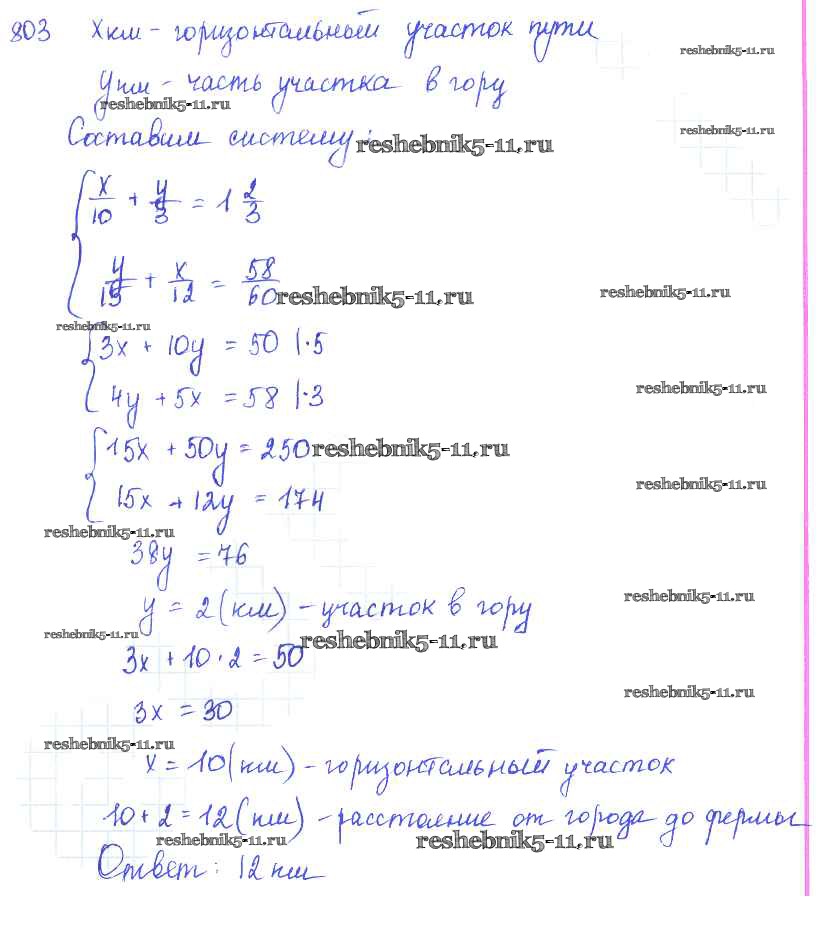 803 х км - горизонтальный участок пути
reshebnik5-11.ru
у км - часть участка в гору
reshebnik5-11.ru
Составим систему:
reshebnik5-11.ru
reshebnik5-11.ru
{ x/10 + y/3 = 1 2/3
y/15 + x/12 = 58/60
reshebnik5-11.ru
reshebnik5-11.ru
reshebnik5-11.ru
{ 3x + 10y = 50 |·5
4y + 5x = 58 |·3
reshebnik5-11.ru
{ 15x + 50y = 250
reshebnik5-11.ru
15x + 12y = 174
reshebnik5-11.ru
reshebnik5-11.ru
38y = 76
y = 2 (км) - участок в гору
reshebnik5-11.ru
reshebnik5-11.ru
reshebnik5-11.ru
3x + 10 · 2 = 50
3x = 30
reshebnik5-11.ru
reshebnik5-11.ru
x = 10 (км) - горизонтальный участок
10 + 2 = 12 (км) - расстояние от города до фермы
reshebnik5-11.ru
reshebnik5-11.ru
Ответ: 12 км